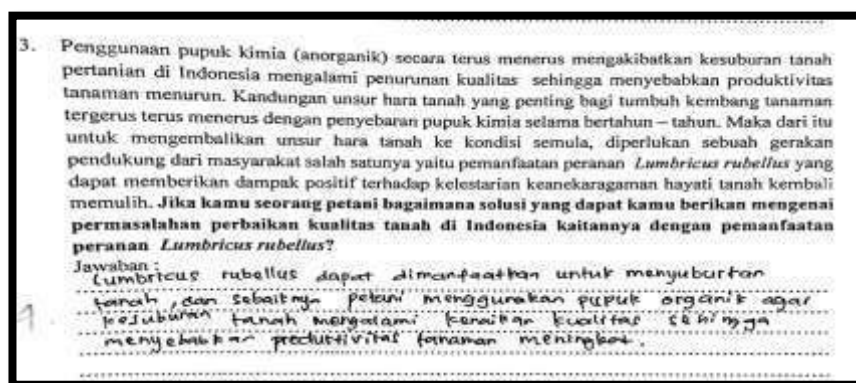 3. Penggunaan pupuk kimia (anorganik) secara terus menerus mengakibatkan kesuburan tanah
pertanian di Indonesia mengalami penurunan kualitas sehingga menyebabkan produktivitas
tanaman menurun. Kandungan unsur hara tanah yang penting bagi tumbuh kembang tanaman
tergerus terus menerus dengan penyebaran pupuk kimia selama bertahun – tahun. Maka dari itu
untuk mengembalikan unsur hara tanah ke kondisi semula, diperlukan sebuah gerakan
pendukung dari masyarakat salah satunya yaitu pemanfaatan peranan Lumbricus rubellus yang
dapat memberikan dampak positif terhadap kelestarian keanekaragaman hayati tanah kembali
memulih. Jika kamu seorang petani bagaimana solusi yang dapat kamu berikan mengenai
permasalahan perbaikan kualitas tanah di Indonesia kaitannya dengan pemanfaatan
peranan Lumbricus rubellus?
Jawaban :
Lumbricus rubellus dapat dimanfaatkan untuk menyuburkan
tanah, dan sebaiknya petani menggunakan pupuk organik agar
kesuburan tanah mengalami kenaikan kualitas sehingga
menyebabkan produktivitas tanaman meningkat.